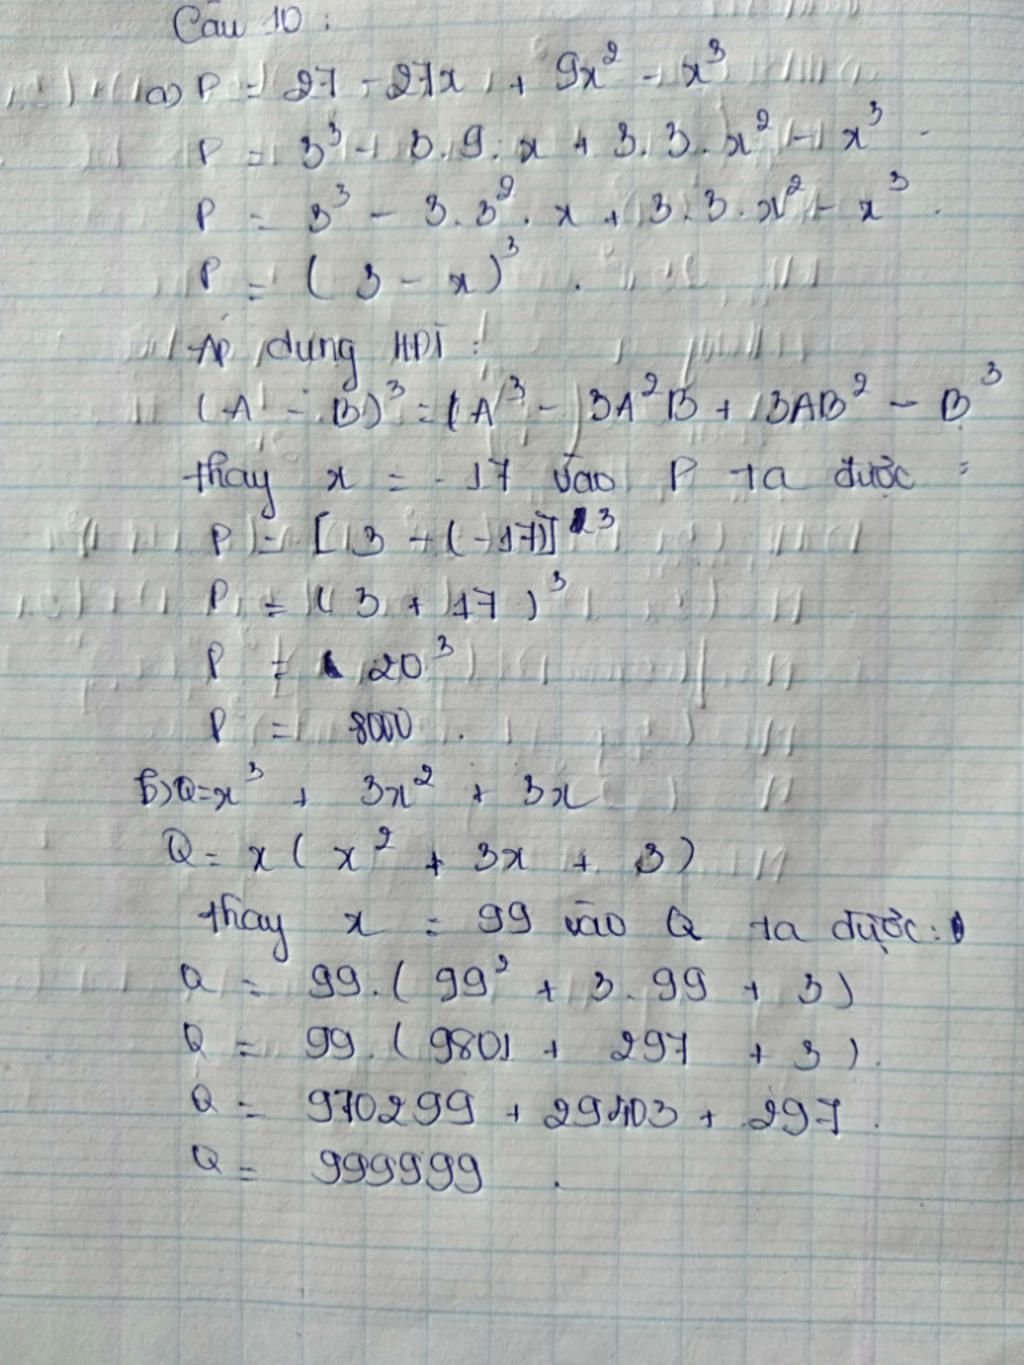 Câu 10 :
a) P = 27 - 27x + 9x² - x³
P = 3³ - 3.9.x + 3.3.x² - x³
P = 3³ - 3.3².x + 3.3.x² - x³.
P = (3 - x)³.
Áp dụng HĐT :
(A - B)³ = A³ - 3A²B + 3AB² - B³
thay x = -17 vào P ta được :
P = [3 - (-17)]³
P = (3 + 17)³
P = 20³
P = 8000.
b) Q = x³ + 3x² + 3x
Q = x(x² + 3x + 3)
thay x = 99 vào Q ta được :
Q = 99.(99² + 3.99 + 3)
Q = 99.(9801 + 297 + 3).
Q = 970299 + 29403 + 297.
Q = 999999.